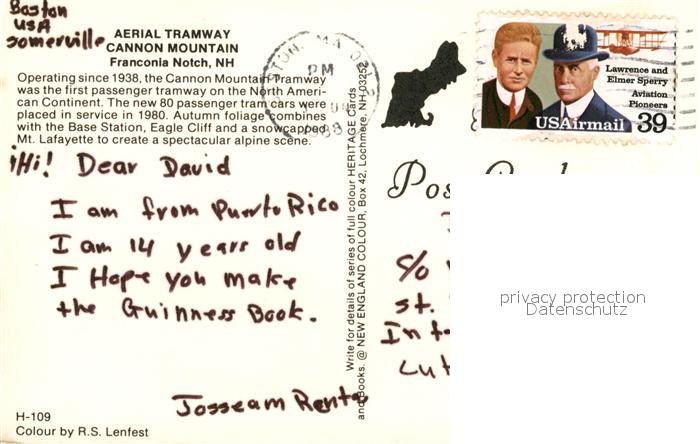 Boston
USA
somerville
AERIAL TRAMWAY
CANNON MOUNTAIN
Franconia Notch, NH
Operating since 1938, the Cannon Mountain Tramway
was the first passenger tramway on the North Ameri-
can Continent. The new 80 passenger tram cars were
placed in service in 1980. Autumn foliage combines
with the Base Station, Eagle Cliff and a snowcapped
Mt. Lafayette to create a spectacular alpine scene.
¡Hi! Dear David
I am from Puerto Rico
I am 14 years old
I Hope you make
the Guinness Book.
Josseam Renta
H-109
Colour by R.S. Lenfest
Write for details of series of full colour HERITAGE Cards
and Books. @ NEW ENGLAND COLOUR, Box 42, Lochmere, NH 0325
PM
Lawrence and
Elmer Sperry
Aviation
Pioneers
USAirmail 39
Pos
c/o
st.
Int
Lut
privacy protection
Datenschutz